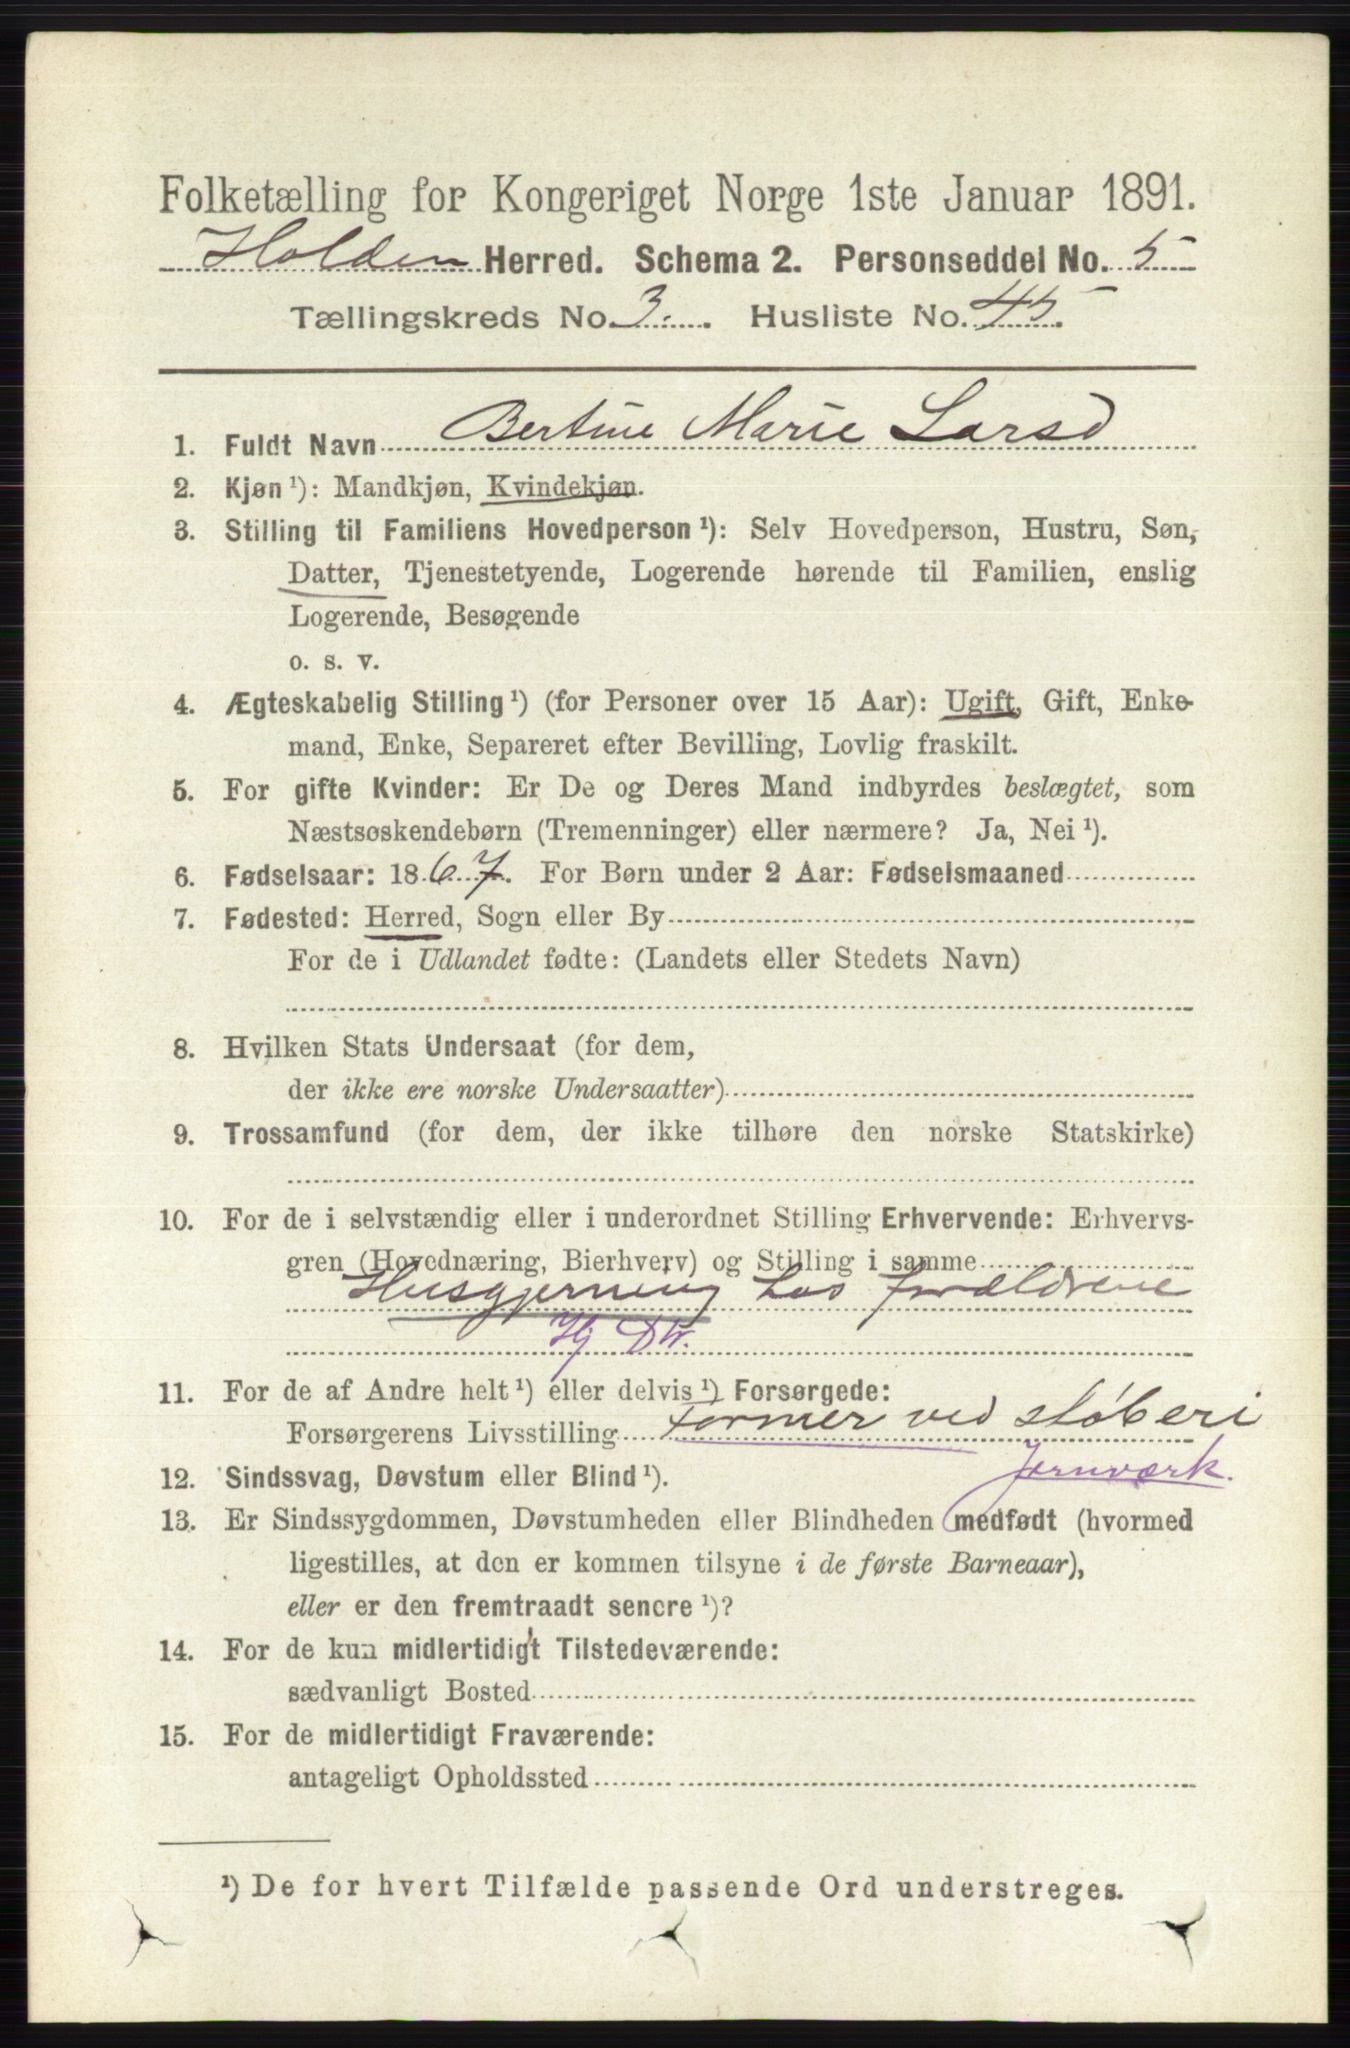 Folketælling for Kongeriget Norge 1ste Januar 1891.
Holden Herred. Schema 2. Personseddel No. 5
Tællingskreds No. 3. Husliste No. 45
1. Fuldt Navn Bertine Marie Larsd
2. Kjøn ¹): Mandkjøn, Kvindekjøn.
3. Stilling til Familiens Hovedperson ¹): Selv Hovedperson, Hustru, Søn,
Datter, Tjenestetyende, Logerende hørende til Familien, enslig
Logerende, Besøgende
o. s. v.
4. Ægteskabelig Stilling ¹) (for Personer over 15 Aar): Ugift, Gift, Enke-
mand, Enke, Separeret efter Bevilling, Lovlig fraskilt.
5. For gifte Kvinder: Er De og Deres Mand indbyrdes beslægtet, som
Næstsøskendebørn (Tremenninger) eller nærmere? Ja, Nei ¹).
6. Fødselsaar: 1867. For Børn under 2 Aar: Fødselsmaaned
7. Fødested: Herred, Sogn eller By
For de i Udlandet fødte: (Landets eller Stedets Navn)
8. Hvilken Stats Undersaat (for dem,
der ikke ere norske Undersaatter)
9. Trossamfund (for dem, der ikke tilhøre den norske Statskirke)
10. For de i selvstændig eller i underordnet Stilling Erhvervende: Erhvervs-
gren (Hovednæring, Bierhverv) og Stilling i samme
Husgjerning hos forældrene
Hj Dtr.
11. For de af Andre helt ¹) eller delvis ¹) Forsørgede:
Forsørgerens Livsstilling Former ved støberi
Jernværk.
12. Sindssvag, Døvstum eller Blind ¹).
13. Er Sindssygdommen, Døvstumheden eller Blindheden medfødt (hvormed
ligestilles, at den er kommen tilsyne i de første Barneaar),
eller er den fremtraadt senere ¹)?
14. For de kun midlertidigt Tilstedeværende:
sædvanligt Bosted
15. For de midlertidigt Fraværende:
antageligt Opholdssted
¹) De for hvert Tilfælde passende Ord understreges.